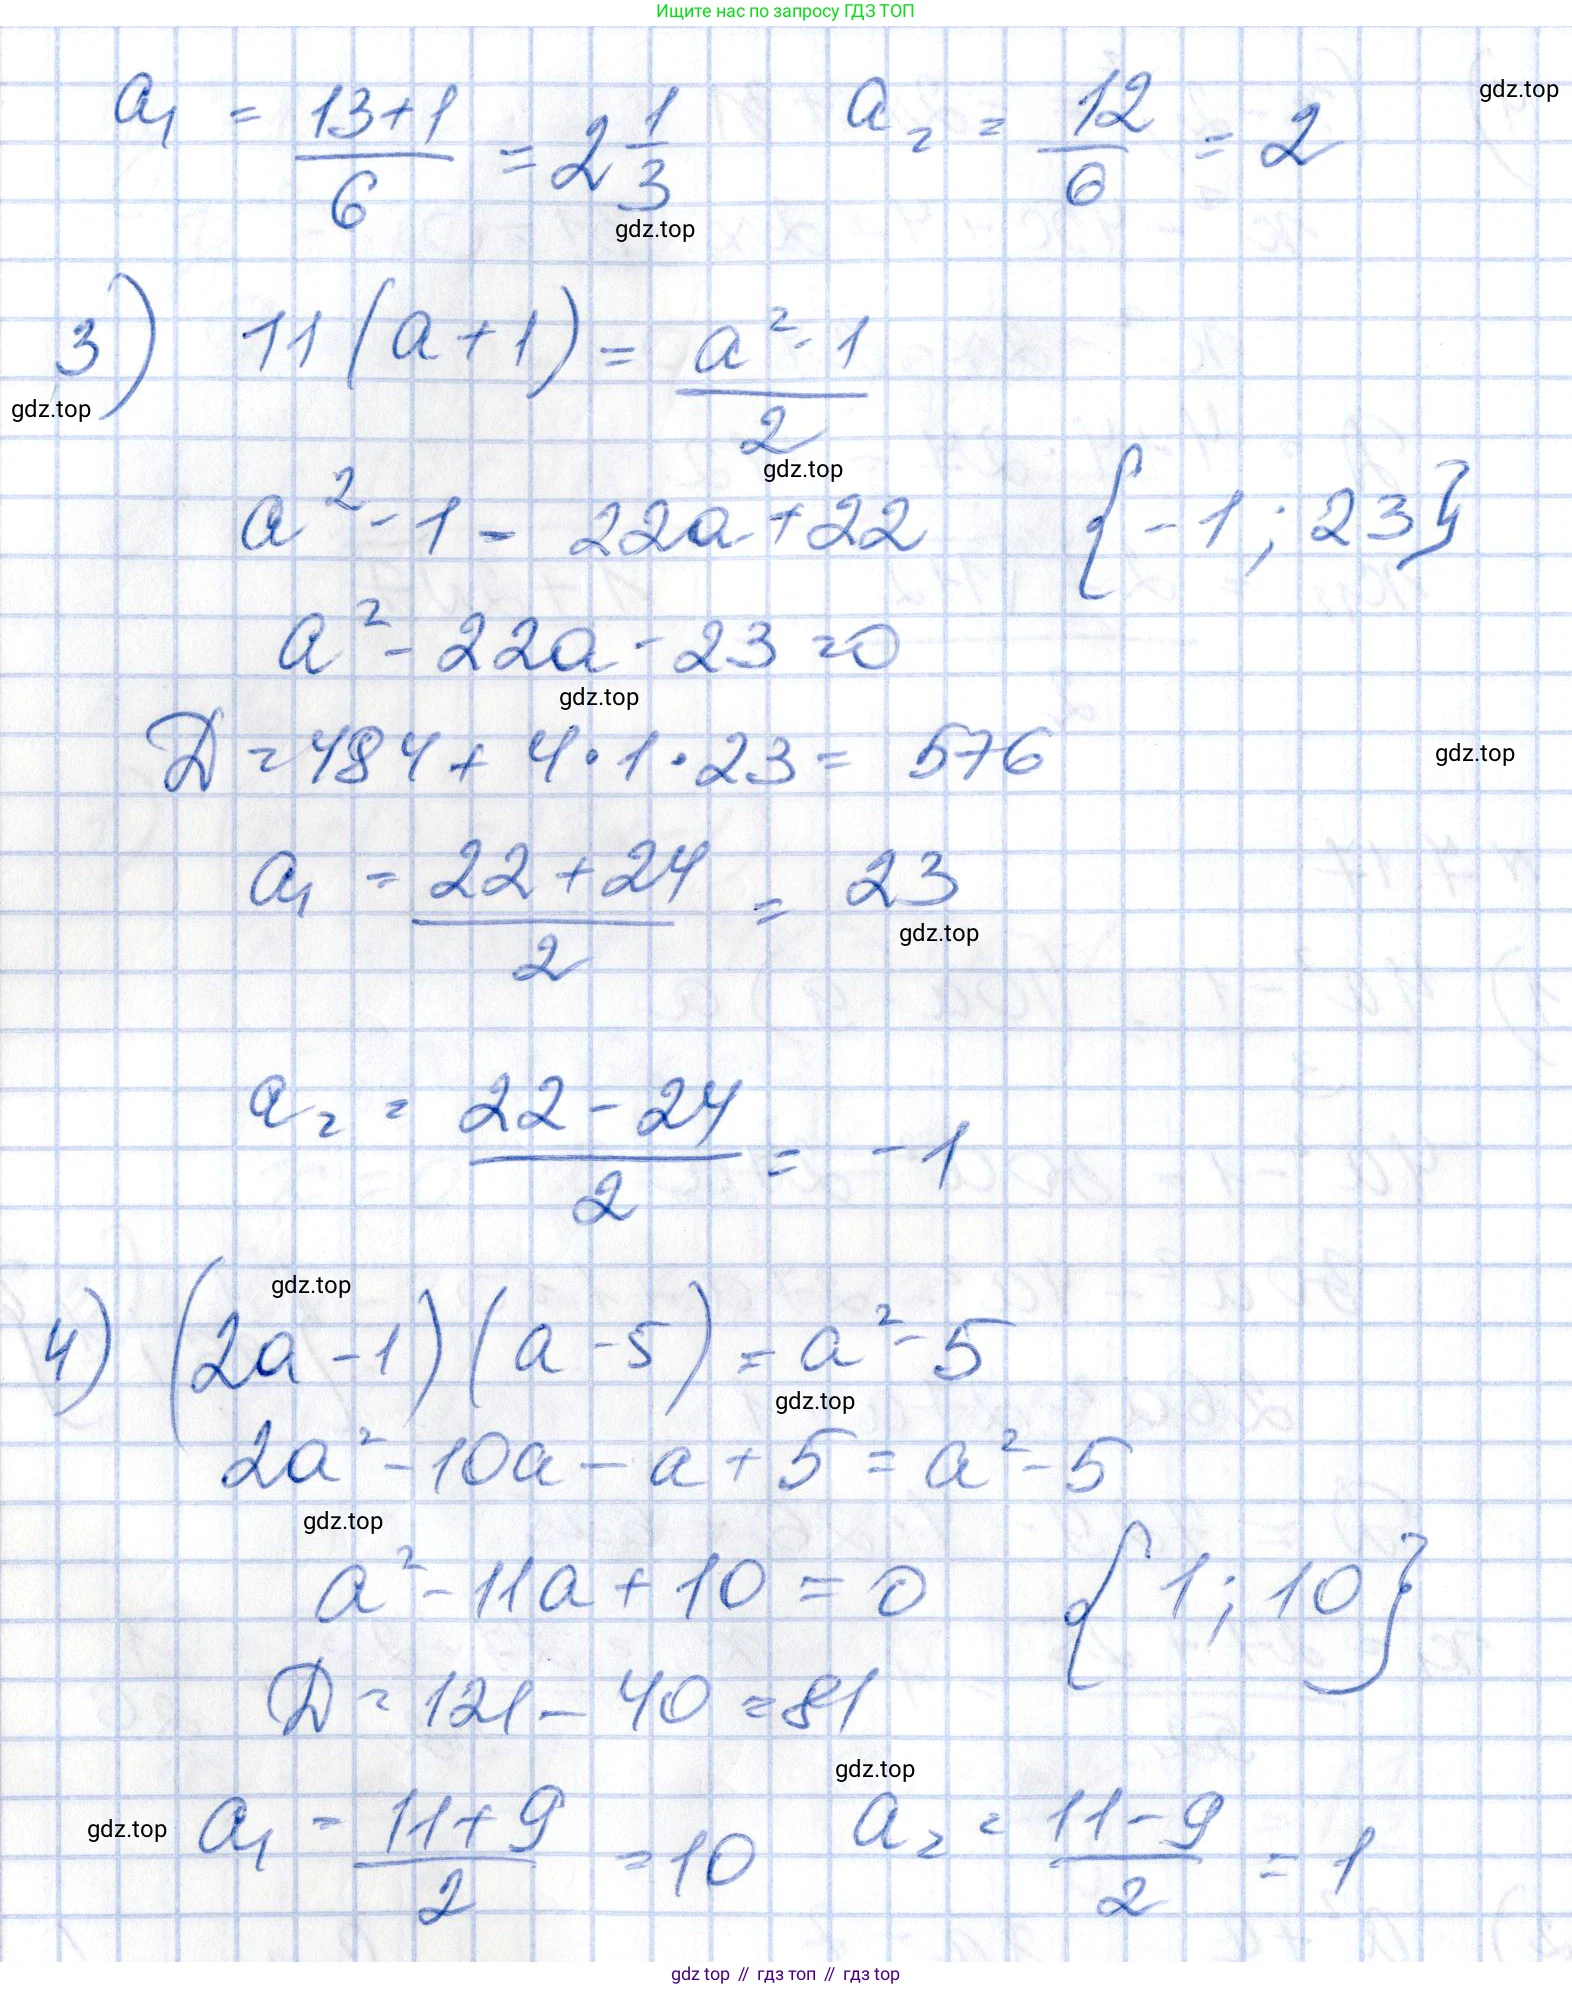 Ищите нас по запросу ГДЗ ТОП
a₁ = (13+1)/6 = 2 1/3 a₂ = 12/6 = 2
gdz.top
gdz.top
3) 11(a+1) = (a²-1)/2
gdz.top
gdz.top
a²-1 = 22a+22 {-1; 23}
a²-22a-23=0
gdz.top
D=484+4·1·23= 576
gdz.top
a₁ = (22+24)/2 = 23
gdz.top
a₂ = (22-24)/2 = -1
gdz.top
4) (2a-1)(a-5)=a²-5
gdz.top
2a²-10a-a+5=a²-5
gdz.top
a²-11a+10=0 {1; 10}
D=121-40=81
gdz.top
gdz.top
a₁ = (11+9)/2 =10 a₂ = (11-9)/2 = 1
gdz top // гдз топ // гдз top